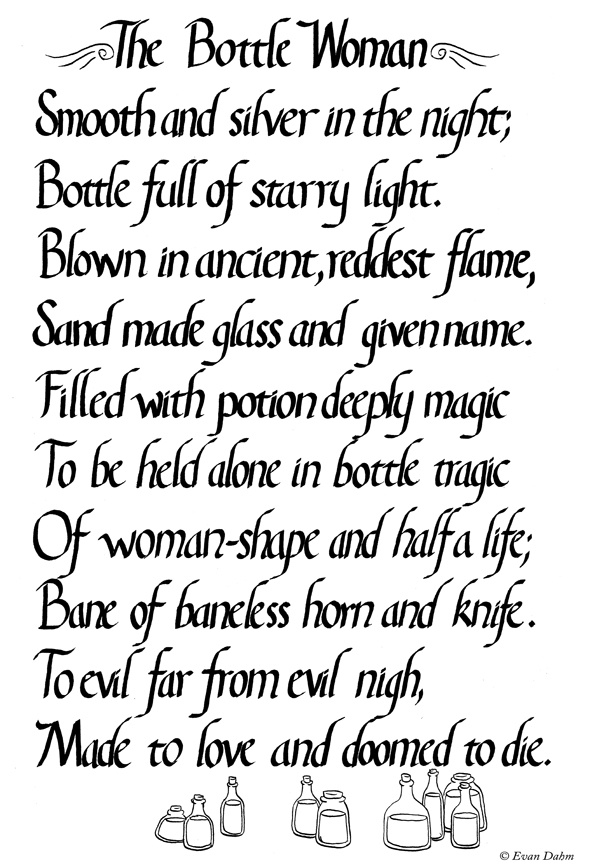 The Bottle Woman
Smooth and silver in the night;
Bottle full of starry light.
Blown in ancient, reddest flame,
Sand made glass and given name.
Filled with potion deeply magic
To be held alone in bottle tragic
Of woman-shape and half a life;
Bane of baneless horn and knife.
To evil far from evil nigh,
Made to love and doomed to die.
© Evan Dahm